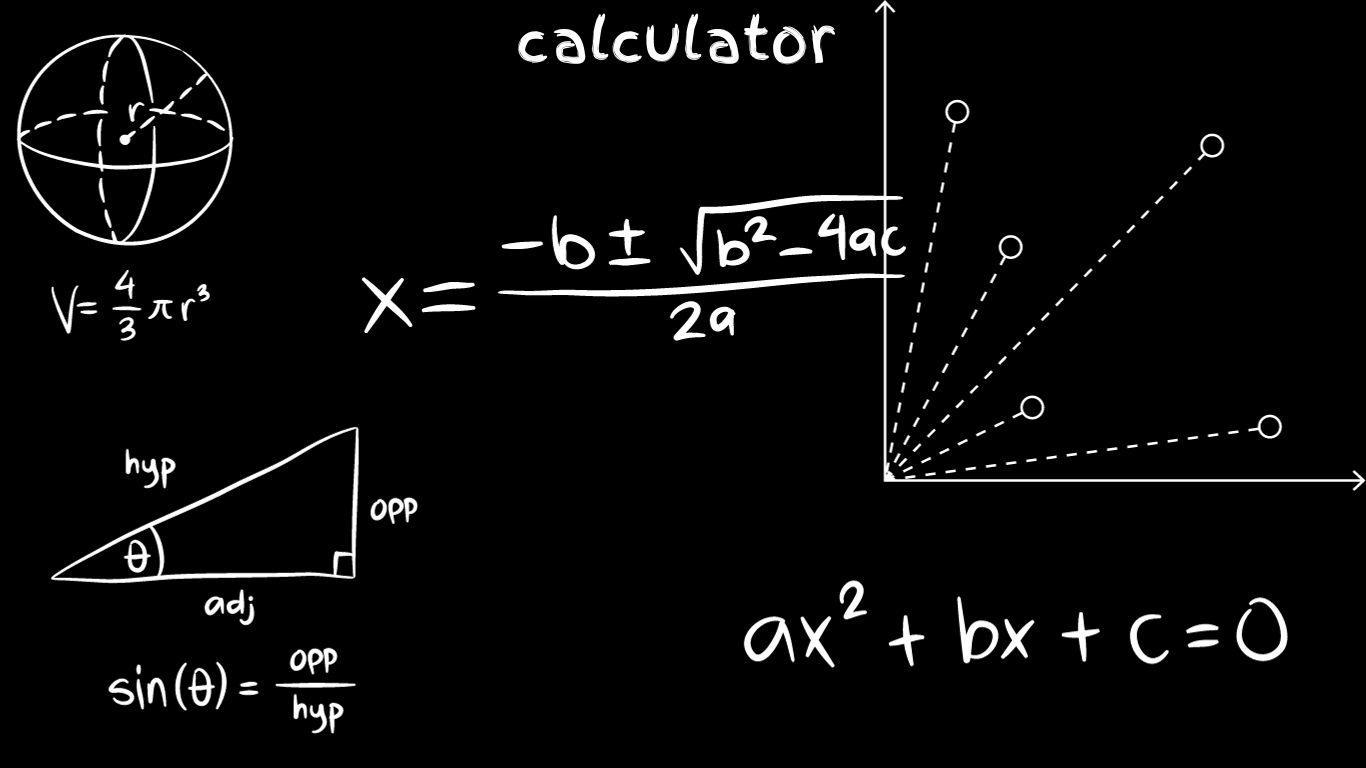 calculator
r
V = 4/3 πr³
x = -b ± √b² - 4ac / 2a
hyp
opp
θ
adj
sin(θ) = opp/hyp
ax² + bx + c = 0